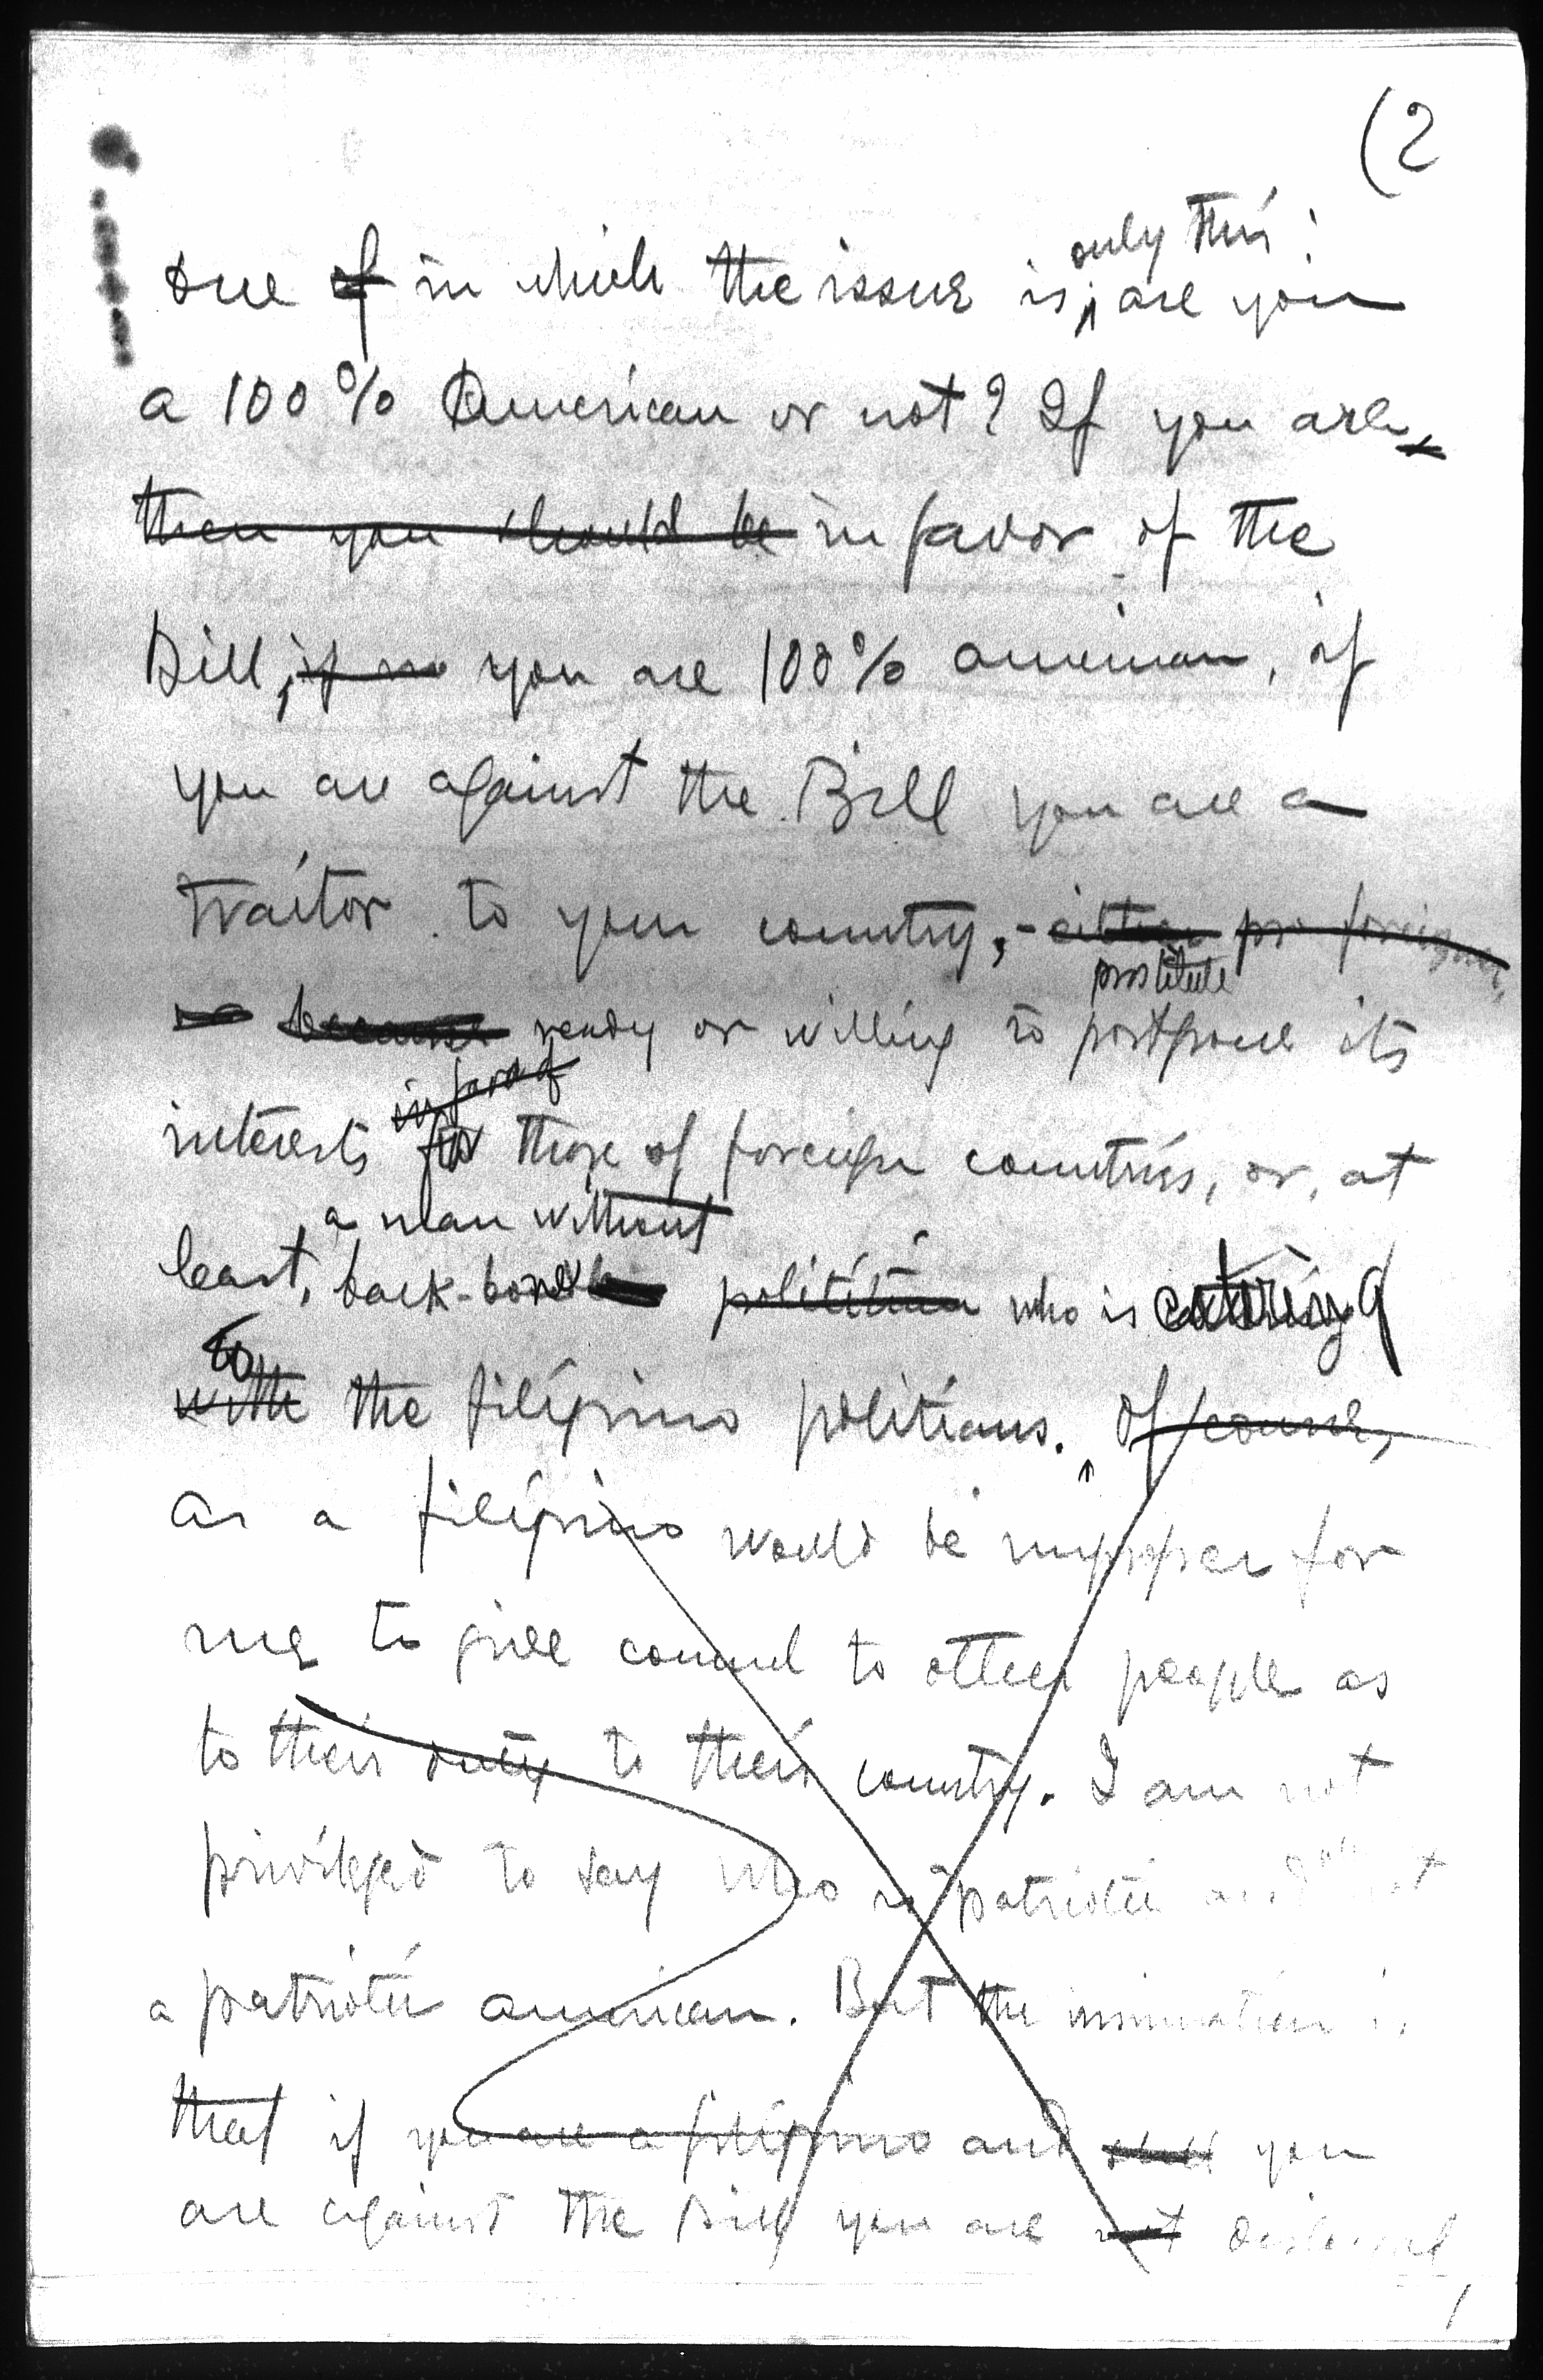 (2
only this:
one of in which the issue is, are you
a 100% American or not? If you are,
then you should be in favor of the
Bill, if so you are 100% american, if
you are against the Bill you are a
traitor to your country, - either pro foreigner,
prostitute
or because ready or willing to postpone its
in favor of
interests for those of foreign countries, or, at
a man without
least, back-bone politician who is catering
to
with the filipino politians. Of course,
as a filipino would be improper for
me to give counsel to other people as
to their duty to their country. I am not
privileged to say who is patriotic and not
a patriotic american. But the insinuation is
that if you are a filipino and still you
are against the Bill you are not disloyal